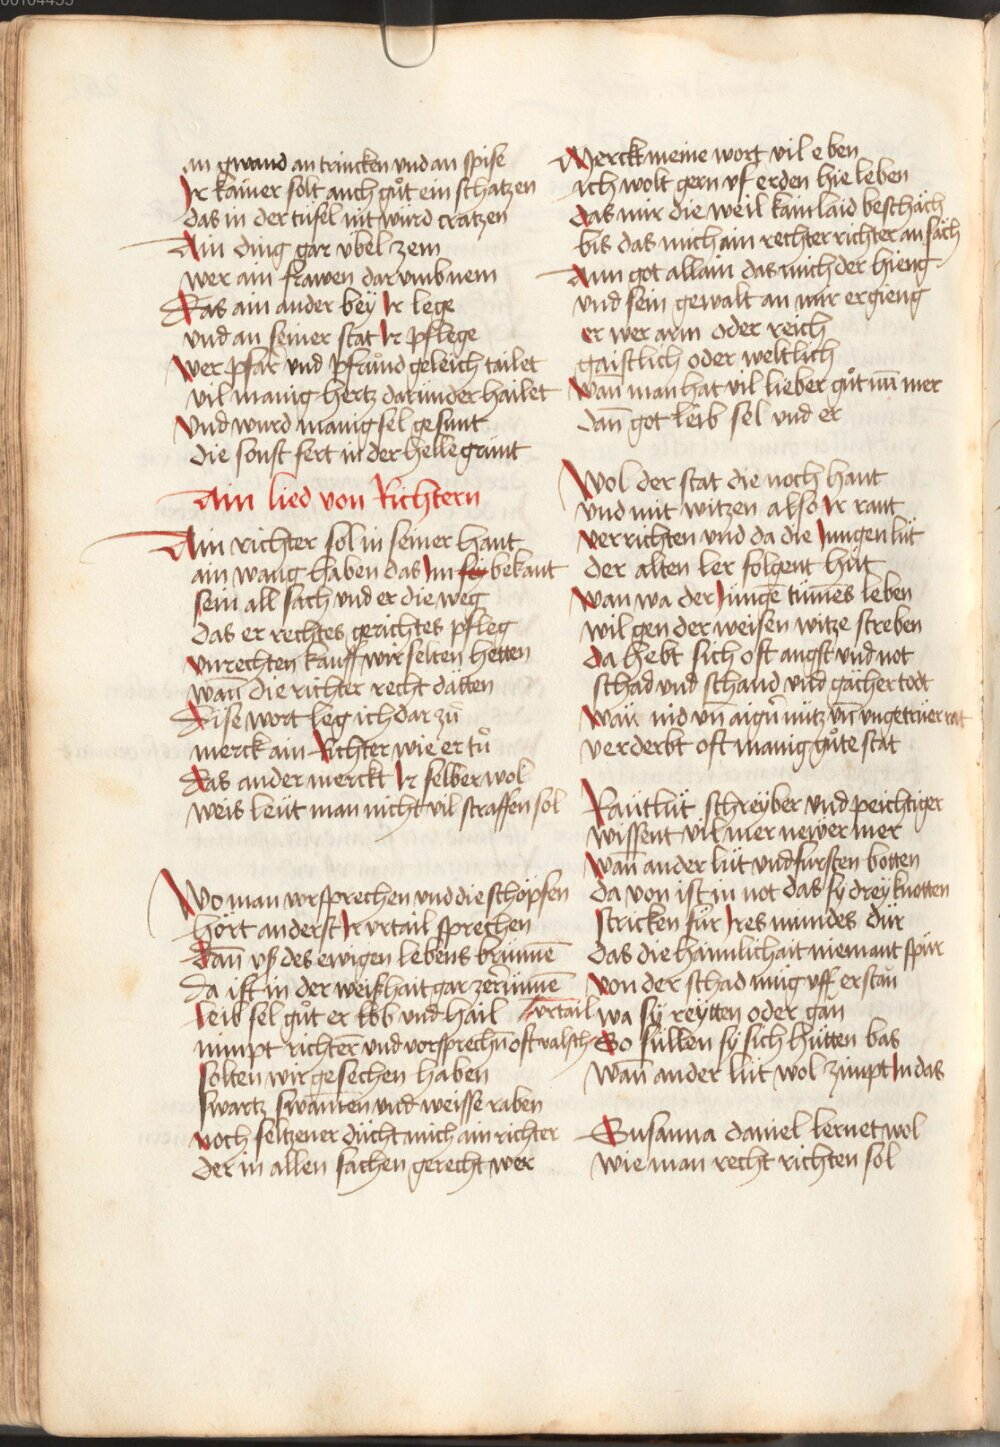 an gwand an trincken und an spise
Ir kainer solt auch gůt ein schatzen
das in der tufel nit wurd cratzen
Ain ding gar vbel zem
wer ain frawen dar vmb nem
Das ain ander bey Ir lege
und an seiner stat Ir pflege
Wer pfar und pfrůnd geleich tailet
vil manig hertz darunder hailet
Und wurd manig sel gesunt
die sonst fert in der helle grunt
Ain lied von Richtern
Ain richter sol in seiner hant
ain wang haben das Im sey bekant
sein all sach und er die weg
das er rechtes gerichtes pfleg
vnrechten kauff wir selten hetten
wañ die richter recht dätten
Dise wort leg ich dar zů
merck ain Richter wie er tů
das ander merckt Ir selber wol
weis leüt man nicht vil straffen sol
Wo man vorsprechen und die schöpfen
hört anderst Ir vrtail sprechen
dañ vß des ewigen lebens brunnē
Da ist in der weißhait gar zerunnē
leib sel gůt er lob und hail
nimpt richter und vorsprechn̄ oft valsch vrtail
solten wir gesechen haben
swartz swannen und weisse raben
noch seltzener dücht mich ain richter
der in allen sachen gerecht wer
Merckt meine wort vil eben
ich wolt gern vf erden hie leben
das mir die weil kain laid beschäch
bis das mich ain rechter richter an säch
Ann got allain das mich der hieng
und sein gewalt an mir ergieng
er wer arm oder reich
gaistlich oder weltlich
wan man hat vil lieber gůt nū mer
dañ got leib sel und er
Wol der stat die noch hant
und mit witzen also Ir rant
verrichten und da die Jungen lüt
der alten ler folgent hüt
wan wa der Jungē tummes leben
wil gen der weisen witze streben
da hebt sich oft angst und not
schad und schand und gächer todt
wan nid vn̄ aign̄ nütz vn̄ vngetrüer rat
verderbt oft manig gůte stat
Rautlüt schreyber und peichtiger
wissent vil mer newer mer
wañ ander lüt und fürsten botten
da von ist in not das sy drey knotten
stricken für Ires mundes dür
das die haimlichait niemant spür
von der schad mug vff erstan
wa sy reytten oder gan
So süllen sy sich hütten bas
wañ ander lüt wol zimpt In das
Susanna daniel lernet wol
wie man recht richten sol